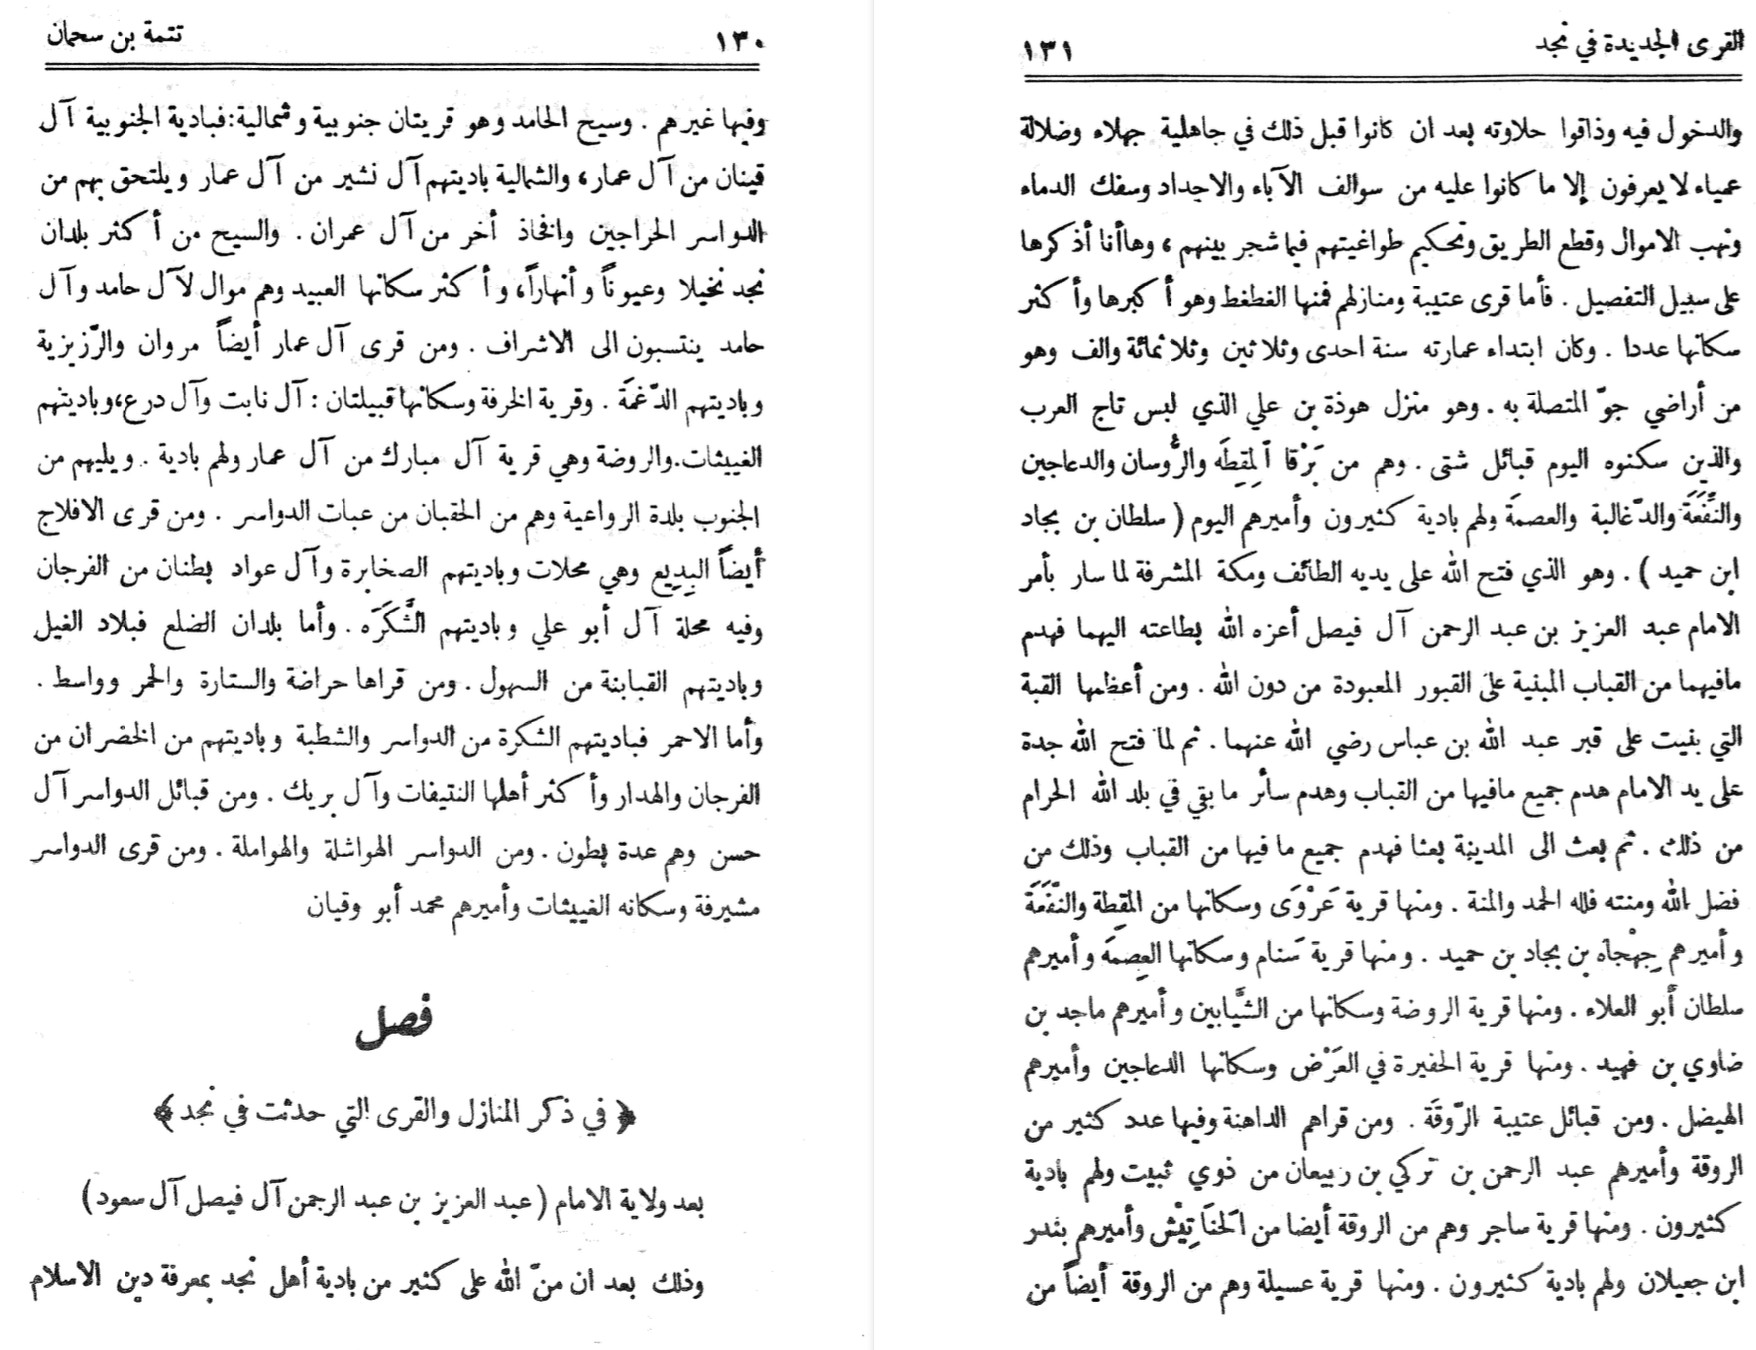 تتمة بن سحمان
١٣٠
وفيها غيرهم . وسيح الحامد وهو قريتان جنوبية وشمالية:فبادية الجنوبية آل
قينان من آل عمار، والشمالية باديتهم آل نشير من آل عمار ويلتحق بهم من
الدواسر الحراجين وافخاذ أخر من آل عمران . والسيح من أكثر بلدان
نجد نخيلا وعيوناً وأنهاراً، وأكثر سكانها العبيد وهم موال لآل حامد وآل
حامد ينتسبون الى الاشراف . ومن قرى آل عمار أيضاً مروان والرّزيزية
وباديتهم الدّغمَة . وقرية الخرفة وسكانها قبيلتان : آل نابت وآل درع،وباديتهم
الغييثات.والروضة وهي قرية آل مبارك من آل عمار ولهم بادية . ويليهم من
الجنوب بلدة الرواعية وهم من الحقبان من عبات الدواسر . ومن قرى الافلاج
أيضاً البِدِيع وهي محلات وباديتهم الصخابرة وآل عواد بطنان من الفرجان
وفيه محلة آل أبو علي وباديتهم الشَّكَرَه . وأما بلدان الضلع فبلاد الغيل
وباديتهم القبابنة من السهول . ومن قراها حراضة والستارة والحمر وواسط .
وأما الاحمر فباديتهم الشكرة من الدواسر والشطبة وباديتهم من الخضران من
الفرجان والهدار وأكثر أهلها النتيفات وآل بريك . ومن قبائل الدواسر آل
حسن وهم عدة بطون . ومن الدواسر الهواشلة والهواملة . ومن قرى الدواسر
مشيرفة وسكانه الغييثات وأميرهم محمد أبو وقيان
فصل
﴿ في ذكر المنازل والقرى التي حدثت في نجد ﴾
بعد ولاية الامام ( عبد العزيز بن عبد الرحمن آل فيصل آل سعود )
وذلك بعد ان منّ الله على كثير من بادية أهل نجد بمعرفة دين الاسلام
القرى الجديدة في نجد
١٣١
والدخول فيه وذاقوا حلاوته بعد ان كانوا قبل ذلك في جاهلية جهلاء وضلالة
عمياء لا يعرفون إلا ما كانوا عليه من سوالف الآباء والاجداد وسفك الدماء
ونهب الاموال وقطع الطريق وتحكيم طواغيتهم فيما شجر بينهم ، وهاأنا أذكرها
على سبيل التفصيل . فأما قرى عتيبة ومنازلهم فمنها الغطغط وهو أكبرها وأكثر
سكانها عددا . وكان ابتداء عمارته سنة احدى وثلاثين وثلاثمائة والف وهو
من أراضي جوّ المتصلة به . وهو منزل هوذة بن علي الذي لبس تاج العرب
والذين سكنوه اليوم قبائل شتى . وهم من بَرْقا اَلمِقِطَه والرُّوسان والدعاجين
والنُّفَعَة والدّغالبة والعصمَة ولهم بادية كثيرون وأميرهم اليوم ( سلطان بن بجاد
ابن حميد ) . وهو الذي فتح الله على يديه الطائف ومكة المشرفة لما سار بأمر
الامام عبد العزيز بن عبد الرحمن آل فيصل أعزه الله بطاعته اليهما فهدم
مافيهما من القباب المبنية على القبور المعبودة من دون الله . ومن أعظمها القبة
التي بنيت على قبر عبد الله بن عباس رضي الله عنهما . ثم لما فتح الله جدة
على يد الامام هدم جميع مافيها من القباب وهدم سائر ما بقي في بلد الله الحرام
من ذلك . ثم بعث الى المدينة بعثا فهدم جميع ما فيها من القباب وذلك من
فضل الله ومنته فلله الحمد والمنة . ومنها قرية عَرْوَى وسكانها من المقِطة والنّفَعَة
وأميرهم جِهْجاه بن بجاد بن حميد . ومنها قرية سَنام وسكانها العِصمَه وأميرهم
سلطان أبو العلاء . ومنها قرية الروضة وسكانها من الشَّيابين وأميرهم ماجد بن
ضاوي بن فهيد . ومنها قرية الحفيرة في العَرْض وسكانها الدعاجين وأميرهم
الهيضل . ومن قبائل عتيبة الرّوقَة . ومن قراهم الداهنة وفيها عدد كثير من
الروقة وأميرهم عبد الرحمن بن تركي بن ربيعان من ذوي ثبيت ولهم بادية
كثيرون . ومنها قرية ساجر وهم من الروقة أيضا من الَحنَاتِيْش وأميرهم بندر
ابن جعيلان ولهم بادية كثيرون . ومنها قرية عسيلة وهم من الروقة أيضاً من